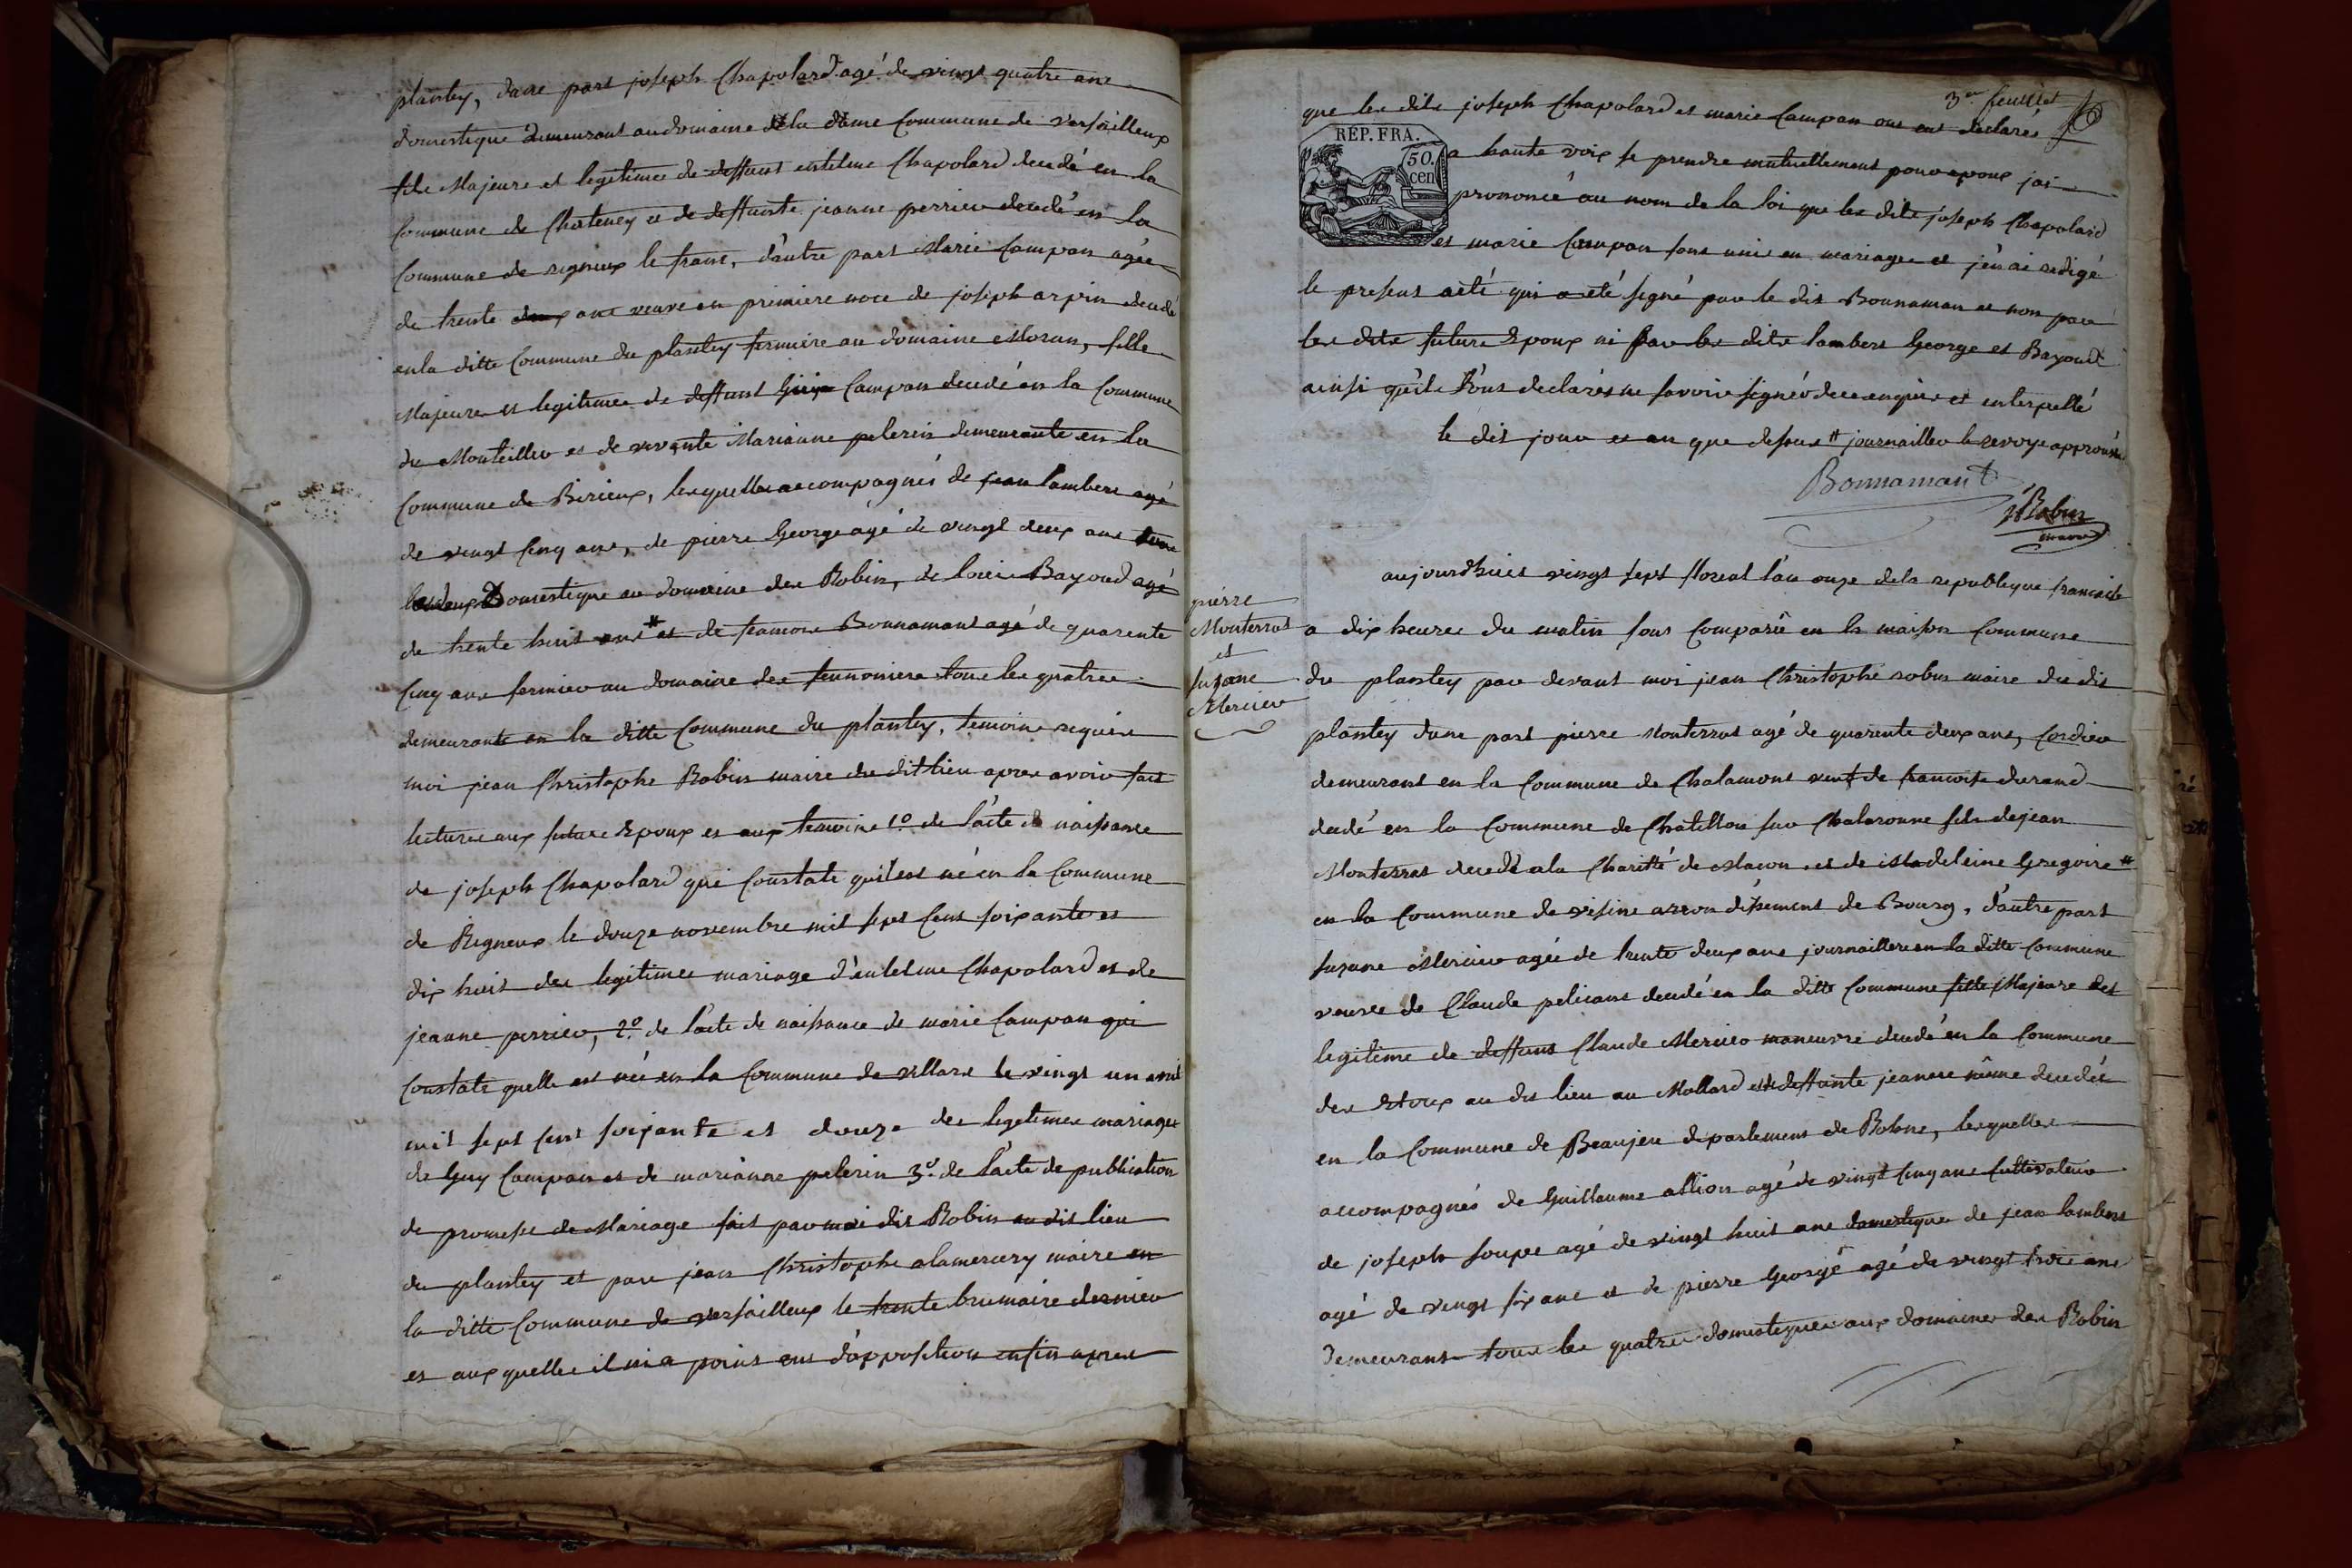 plantey, dune part joseph Chapolard agé de vingt quatre ans
domestique demeurant au domaine de la dame Commune de versailleux
fils Majeure et legitime de deffunt entelme Chapolard decedé en la
Commune de Chatenay et de deffunte jeanne perrier decedé en la
Commune de rigneux le franc, d'autre part Marie Campan agée
de trente ans veuve en premiere noce de joseph arpin decedé
en la ditte Commune du plantey fermiere au domaine Moran, fille
Majeure et legitime de deffunt Campan decedé en la Commune
du Montellier et de vivante Marianne pelerin demeurante en la
Commune de Birieux, lesquelles accompagnés de jean lambert agé
de vingt cinq ans, de pierre George agé de vingt deux ans
les deux Domestique au domaine des Robin, de louis Bayoud agé
de trente huit ans # et de francois Bonnamant agé de quarente
cinq ans fermier au domaine des tous les quatres
demeurants en la ditte Commune du plantey, temoins requis
moi jean Christophe Robin maire du dit lieu apres avoir fait
lecture aux futurs Epoux et aux temoins 1º de l'acte de naissance
de joseph Chapolard qui Constate quil est né en la Commune
de Rigneux le douze novembre mil sept cens soixante et
dix huit des legitimes mariage d'entelme Chapolard et de
jeanne perrier, 2º de l'acte de naissance de marie Campan qui
Constate quelle est née en la Commune de villars le vingt un avril
mil sept cens soixante et douze des legetimes mariages
de Guy Campan et de marianne pelerin 3º de l'acte de publication
de promesse de Mariage fait par moi dit Robin au dit lieu
du plantey et par jean Christophe alamercery maire en
la ditte Commune de versailleux le trente brumaire dernier
et aux quelles il ni a poins eus d'opposition enfin apres
3er feuillet
que les dits joseph Chapolard et marie Campan ont declarés
RÉP. FRA.
50. cen
a haute voix se prendre mutuellement pour epoux jai
prononcé au nom de la loi que les dits joseph Chapolard
et marie Campan sont unis en mariage et j'en ai redigé
le present acté qui a eté signé par le dit Bonnamant et non par
les dits futurs Epoux ni par les dits lambert George et Bayoud
ainsi qu'ils l'ons declarés ne savoir signér de ce enquis et enterpellé
le dit jour et an que dessus # journaillier le renvoye approuvé
Bonnamant
Robin
maire
pierre
Monterrat
et
suzane
Mercier
aujourdhuis vingt sept floreal l'an onze de la republique francaise
a dix heures du matin sont Comparû en la maison Commune
du plantey par devant moi jean Christophe robin maire du dit
plantey dune part pierre Monterrat agé de quarente deux ans, Cordier
demeurant en la Commune de Chalamont veuf de francoise durand
decedé en la Commune de Chatillon sur Chalaronne fils de jean
Monterrat decedé a la Charitté de Macon et de Madeleine Gregoire #
en la Commune de visine arrondissement de Bourg, d'autre part
suzane Mercier agée de trente deux ans journailliere en la ditte Commune
veuve de Claude pelicans decedé en la ditte Commune fille Majeure et
legitime de deffunt Claude Mercier manœuvre decedé en la Commune
des Etoux au dit lieu au Mollard et de deffunte jeanne decedée
en la Commune de Beaujeu departement de Rohne, lesquelles
accompagnés de Guillaume allion agé de vingt cinq ans cultivateur
de joseph soupe agé de vingt huit ans domestique de jean lambert
agé de vingt six ans et de pierre George agé de vingt trois ans
demeurants tous les quatres domestiques aux domaines des Robin